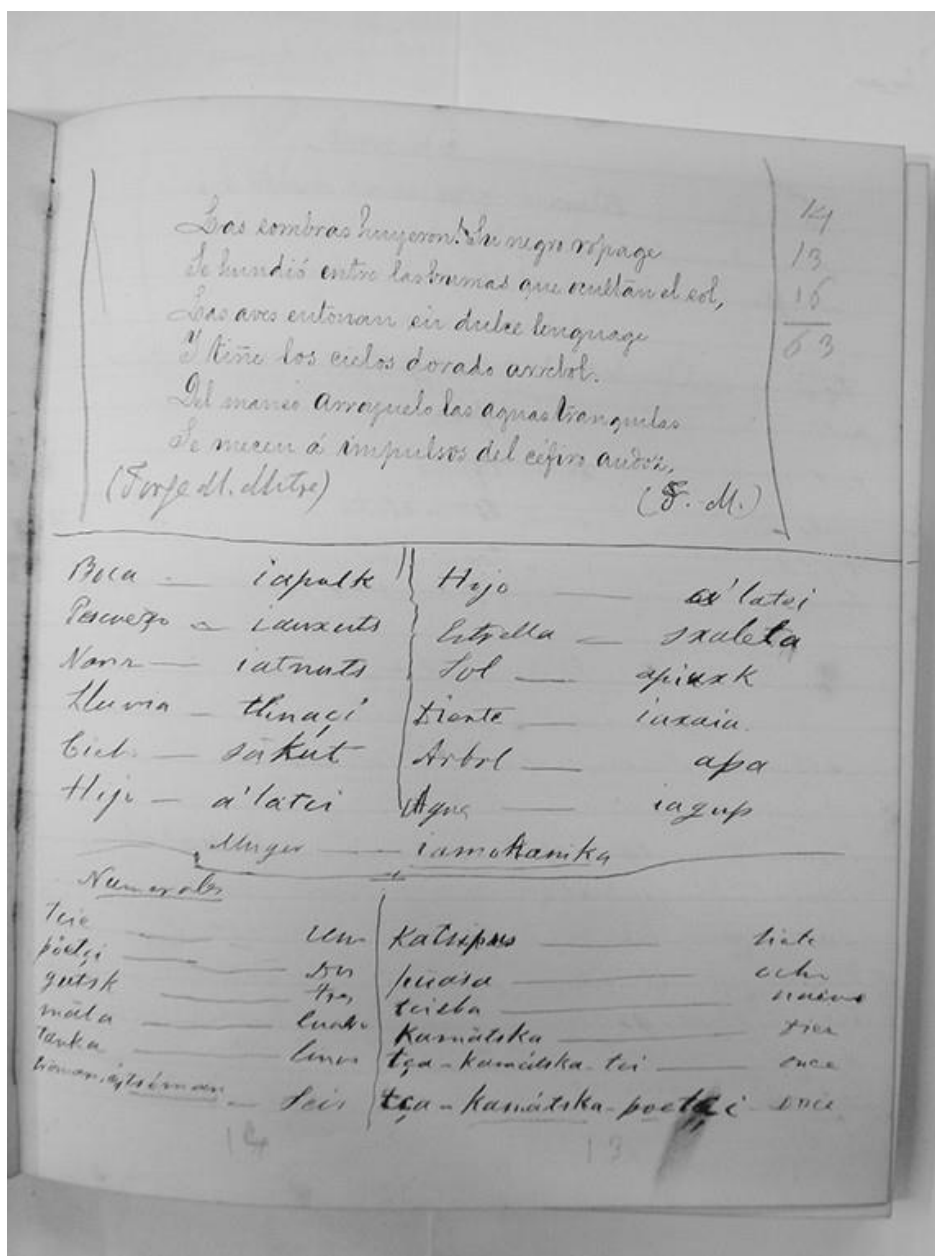 Las sombras huyeron! Su negro ropage
Se hundió entre las brumas que ocultan el sol,
Las aves entonan su dulce lenguage
Y tiñe los cielos dorado arrebol.
Del manso arroyuelo las aguas tranquilas
Se mecen á impulsos del céfiro audoz,
(Jorge M. Mitre) (J. M.)
14
13
16
63
Boca — iapalk
Pescuezo — iauxuts
Nariz — iatnuts
Lluvia — tlinaçi
Cielo — sakut
Hijo — a'latei
Hijo — a'latei
Estrella — sxaleta
Sol — apiuxk
Diente — iuxaia.
Arbol — apa
Agua — iagup
Muger — iamokanika
Numerales
teie — un
pöetçi — Dos
gutsk — tres
mäla — Cuatro
tanka — Cinco
Seis
Katsipus — siete
puasa — ocho
teieba — nueve
Kamätska — Diez
tça-kamátska-tei — once
tça-kamátska-poetçi — once
14 13